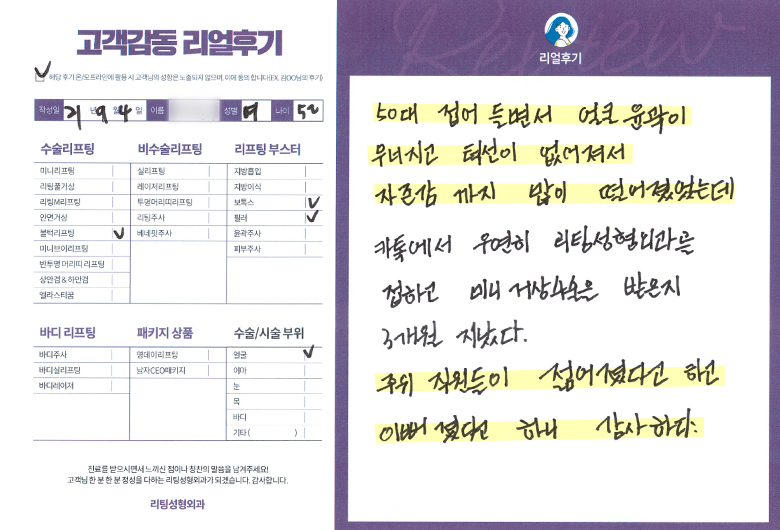 고객감동 리얼후기
해당 후기 온/오프라인에 활용 시 고객님의 성함은 노출되지 않으며, 이에 동의 합니다(EX. 김OO님의 후기)
작성일 21 년 9 월 4 일 이름 성별 여 나이 52
수술리프팅
미니리프팅
리팅풀거상
리팅M리프팅
안면거상
볼턱리프팅
미니브이리프팅
반투명 머리띠 리프팅
상안검 & 하안검
엘라스티꿈
비수술리프팅
실리프팅
레이저리프팅
투명머리띠리프팅
리팅주사
베네핏주사
리프팅 부스터
지방흡입
지방이식
보톡스
필러
윤곽주사
피부주사
바디 리프팅
바디주사
바디실리프팅
바디레이저
패키지 상품
영데이리프팅
남자CEO패키지
수술/시술 부위
얼굴
이마
눈
목
바디
기타 ( )
진료를 받으시면서 느끼신 점이나 칭찬의 말씀을 남겨주세요!
고객님 한 분 한 분 정성을 다하는 리팅성형외과가 되겠습니다. 감사합니다.
리팅성형외과
Review
리얼후기
50대 접어 들면서 얼굴 윤곽이
무너지고 턱선이 없어져서
자존감 까지 많이 떨어졌었는데
카톡에서 우연히 리팅성형외과를
접하고 미니거상수술을 받은지
3개월 지났다.
주위 직원들이 젊어졌다고 하고
이뻐졌다고 하니 감사하다.